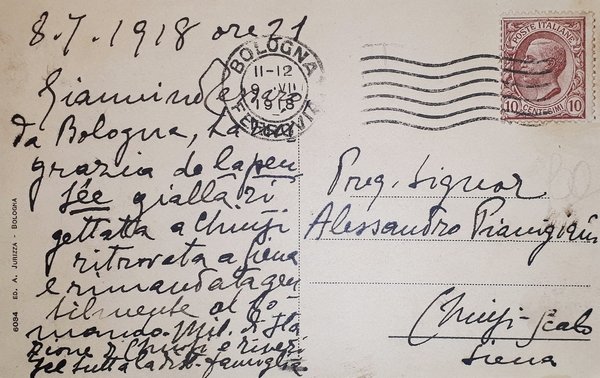 8.7.1918 ore 21
Giannino
da Bologna, La
grazia de la pen
sée gialla ri
gettata a Chiusi
ritrovata a Siena
e rimandata gen
tilmente al Co-
mando. Mil. di Sta
zione di Chiusi e
tutta la famiglia
BOLOGNA
11-12
9 VII
1918
FERROVIA
POSTE ITALIANE
10 CENTESIMI 10
Preg. Signor
Alessandro Pianigiani
Chiusi-Scalo
Siena
6084 ED. A. JURIZZA - BOLOGNA